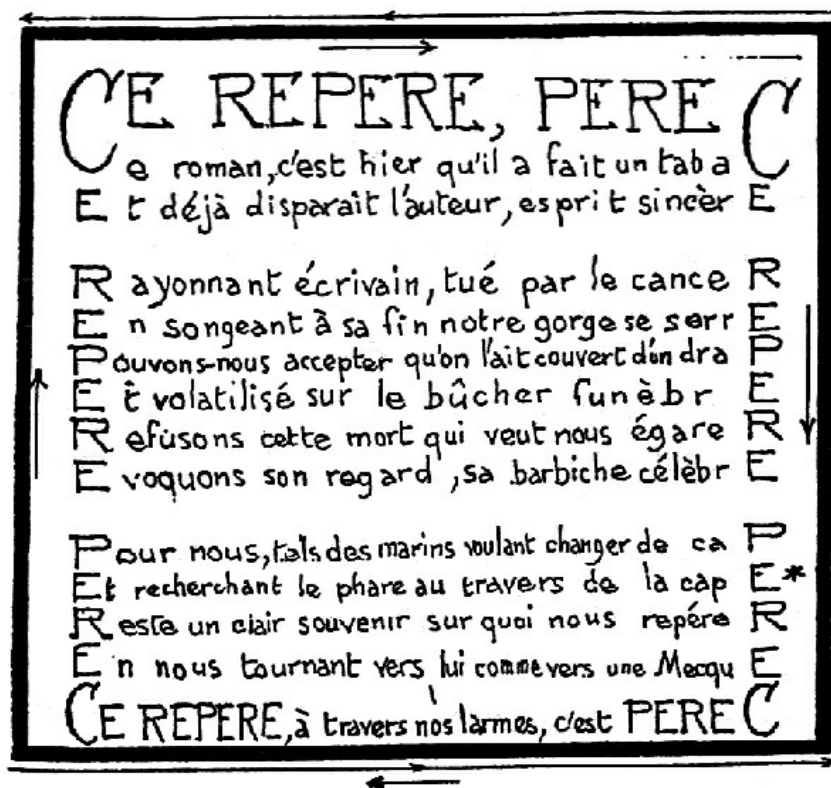 CE REPERE, PEREC
Ce roman, c'est hier qu'il a fait un tabac
Et déjà disparaît l'auteur, esprit sincèrE
Rayonnant écrivain, tué par le canceR
En songeant à sa fin notre gorge se serrE
Pouvons-nous accepter qu'on l'ait couvert d'un draP
Et volatilisé sur le bûcher funèbrE
Refusons cette mort qui veut nous égareR
Evoquons son regard, sa barbiche célèbrE
Pour nous, tels des marins voulant changer de caP
Et recherchant le phare au travers de la capE*
Reste un clair souvenir sur quoi nous repéreR
En nous tournant vers lui comme vers une MecquE
CE REPERE, à travers nos larmes, c'est PEREC